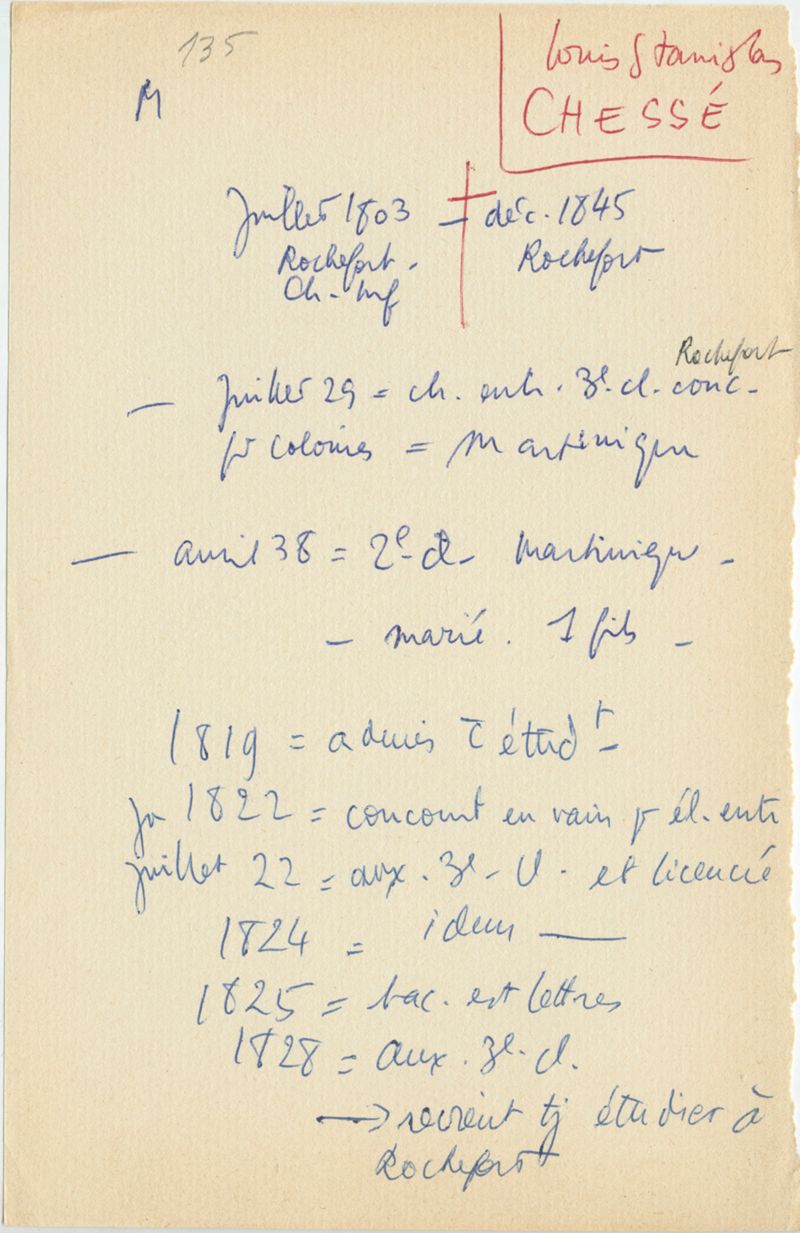 135
M
Louis Stanislas
CHESSÉ
Juillet 1803 – déc. 1845
Rochefort - Rochefort
Ch. Inf
Rochefort
— Juillet 29 = ch. entr. 3e cl. conc -
pr colonies = Martinique
— avril 38 = 2e cl - Martinique -
- marié. 1 fils -
1819 = admis c̄ étudt -
ja 1822 = concourt en vain pr él. entr
juillet 22 = aux. 3e - cl. et licencié
1824 = idem —
1825 = bac. est lettres
1828 = aux. 3e. cl.
→ revient tj étudier à
Rochefort